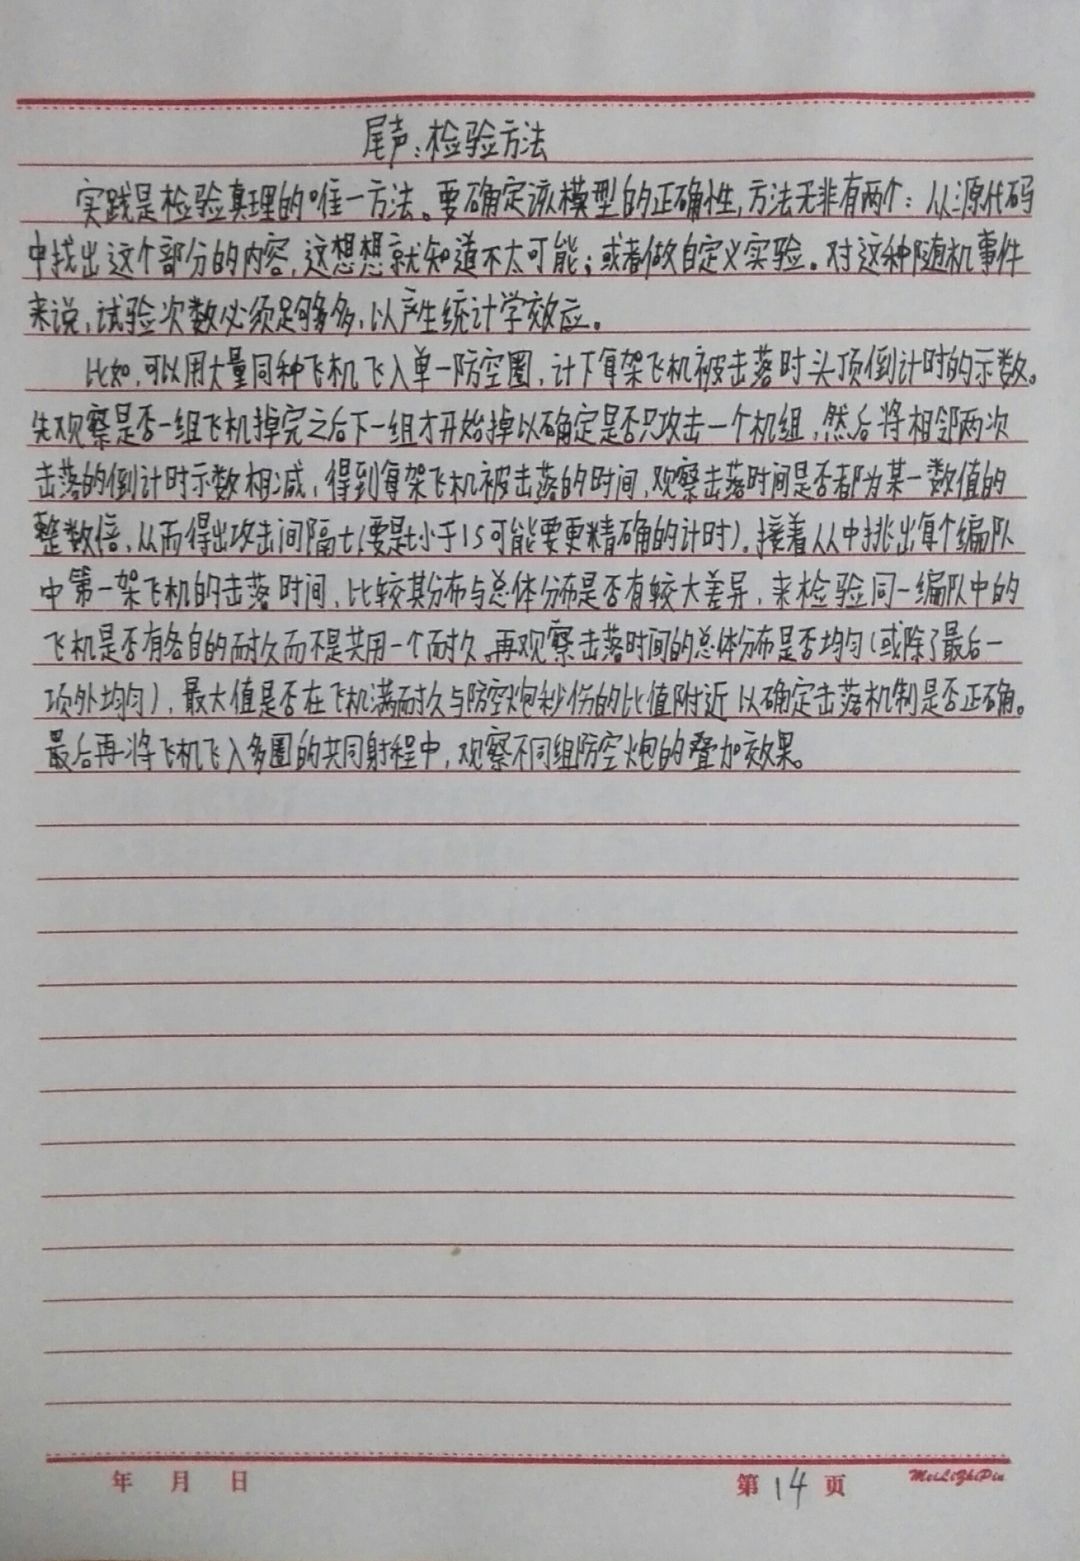 尾声:检验方法
实践是检验真理的唯一方法。要确定该模型的正确性,方法无非有两个:从源代码
中找出这个部分的内容,这想想就知道不太可能;或者做自定义实验。对这种随机事件
来说,试验次数必须足够多多,以产生统计学效应。
比如,可以用大量同种飞机飞入单一防空圈,计下每架飞机被击落时头顶倒计时的示数。
先观察是否一组飞机掉完之后下一组才开始掉以确定是否只攻击一个机组,然后将相邻两次
击落的倒计时示数相减,得到每架飞机被击落的时间,观察击落时间是否都为某一数值的
整数倍,从而得出攻击间隔t(要是t小于1s可能要更精确的计时)。接着从中挑出每个编队
中第一架飞机的击落时间,比较其分布与总体分布是否有较大差异,来检验同一编队中的
飞机是否有各自的耐久而不是共用一个耐久。再观察击落时间的总体分布是否均匀(或除了最后一
项外均匀),最大值是否在飞机满耐久与防空炮秒伤的比值附近以确定击落机制是否正确。
最后再将飞机飞入多圈的共同射程中,观察不同组防空炮的叠加效果。
年 月 日 第14页 MeiLiZhiPin